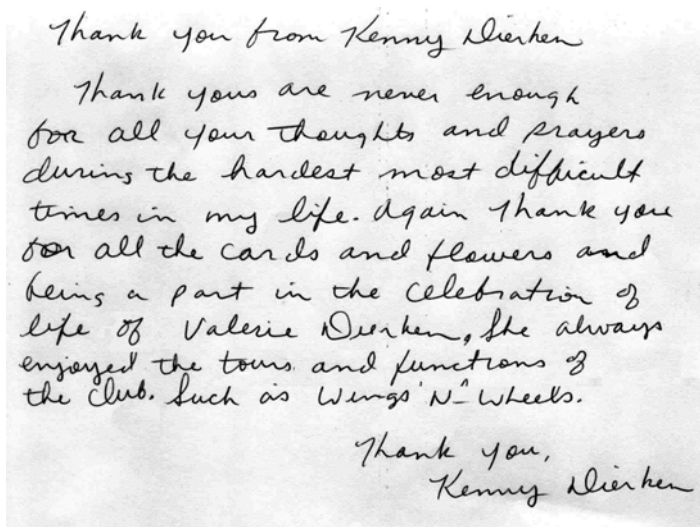 Thank you from Kenny Dierken
Thank yous are never enough
for all your thoughts and prayers
during the hardest most difficult
times in my life. Again thank you
for all the cards and flowers and
being a part in the celebration of
life of Valerie Dierken, She always
enjoyed the tours and functions of
the club. Such as Wings 'N' Wheels.
Thank you,
Kenny Dierken